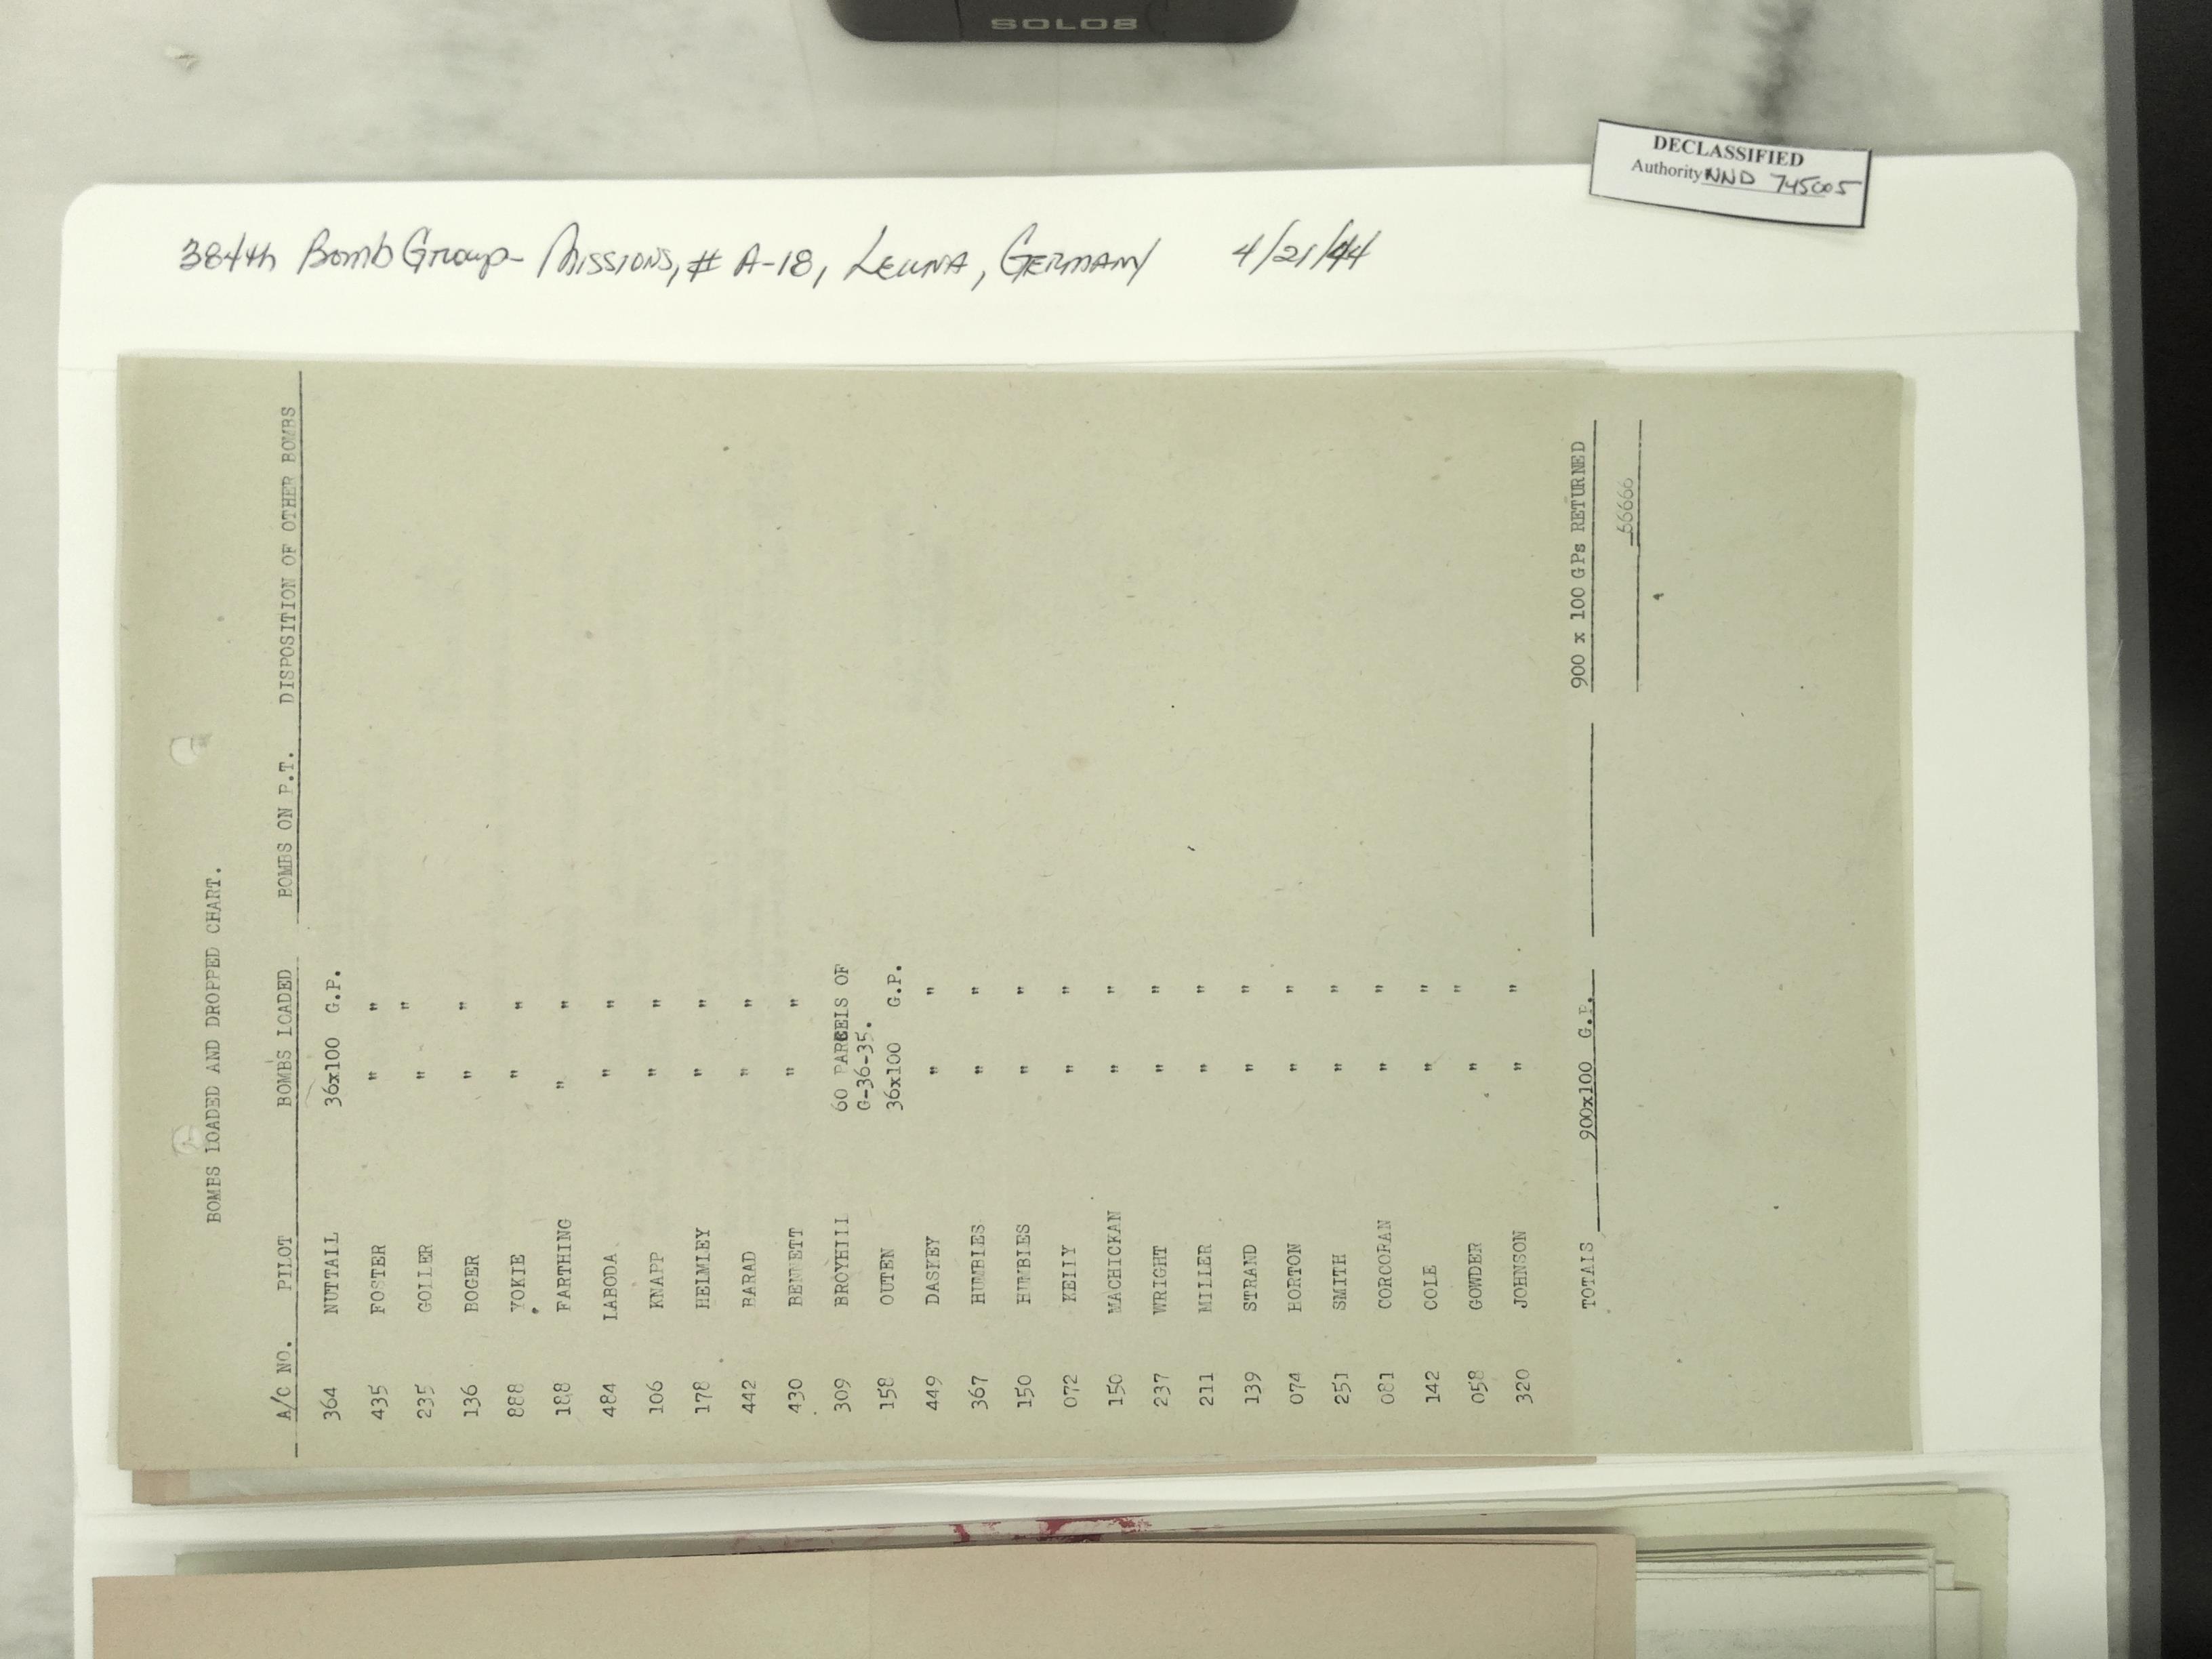 SOLO8
DECLASSIFIED
Authority NND 745005
384th Bomb Group - Missions, # A-18, Leuna, Germany 4/21/44
BOMBS LOADED AND DROPPED CHART.
A/C NO. PILOT BOMBS LOADED BOMBS ON P.T. DISPOSITION OF OTHER BOMBS
364 NUTTALL 36x100 G.P.
435 FOSTER " "
235 GOLLER " "
136 BOGER " "
888 YOKIE " "
188 FARTHING " "
484 LABODA " "
106 KNAPP " "
178 HELMLEY " "
442 BARAD " "
430 BENNETT " "
309 BROYHILL 60 PARCELS OF
G-36-35.
158 OUTEN 36x100 G.P.
449 DASKEY " "
367 HUMBLES " "
150 HUMBLES " "
072 KELLY " "
150 MACHICKAN " "
237 WRIGHT " "
211 MILLER " "
139 STRAND " "
074 HORTON " "
251 SMITH " "
081 CORCORAN " "
142 COLE " "
058 GOWDER " "
320 JOHNSON " "
TOTALS 900x100 G.P. 900 x 100 GPs RETURNED